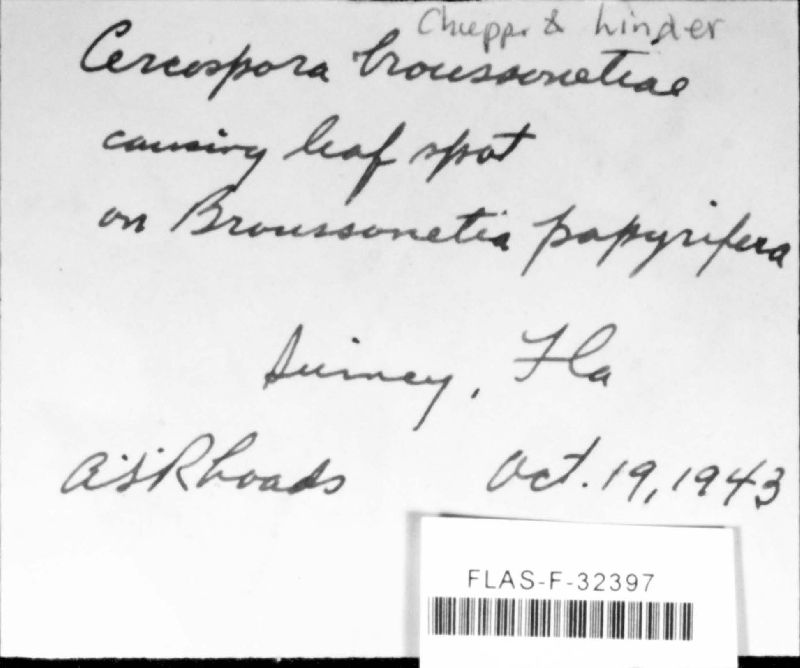 Chupp & Linder
Cercospora broussonetiae
causing leaf spot
on Broussonetia papyrifera
Fla
A.S. Rhoads Oct. 19, 1943
FLAS-F-32397